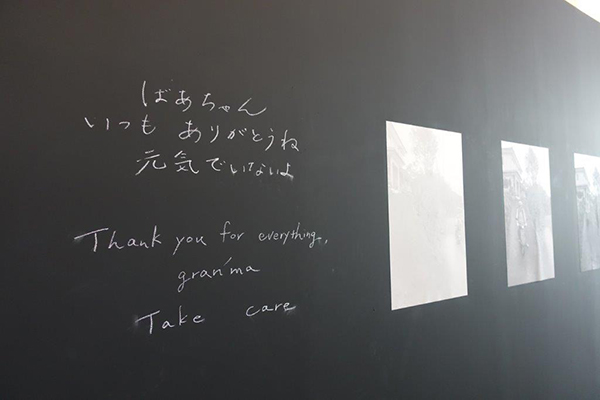 ばあちゃん
いつも ありがとうね
元気でいてないよ
Thank you for everything,
gran'ma
Take care